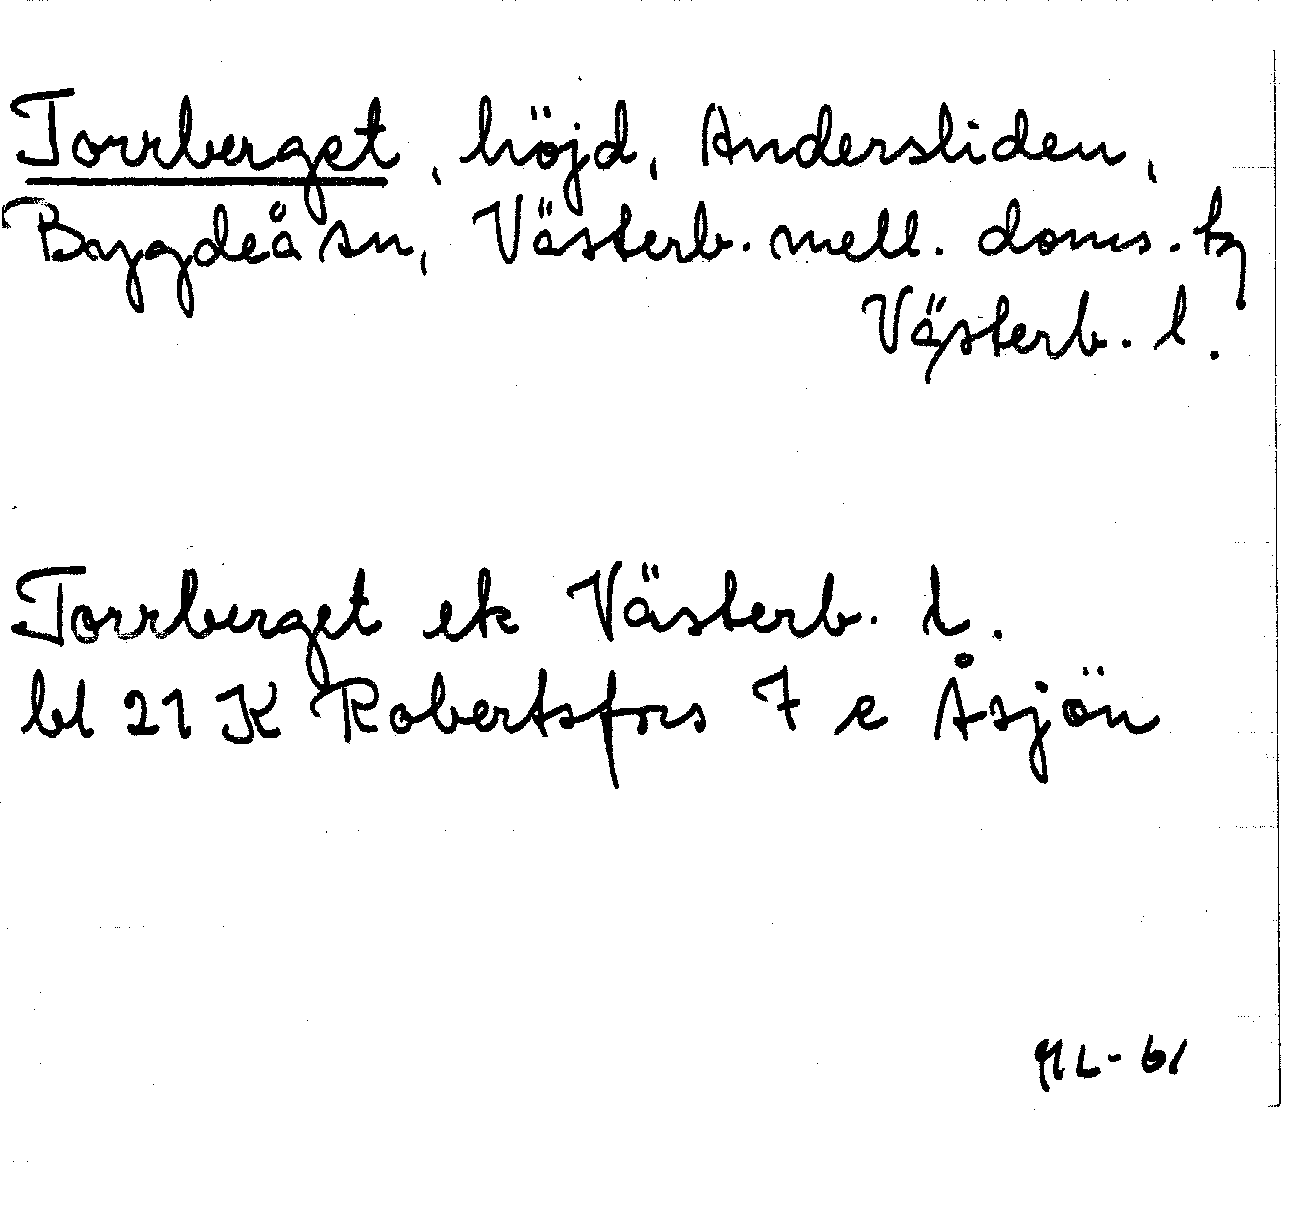 Torrberget, höjd, Andersliden,
Bygdeå sn, Västerb. mell. doms. tg
Västerb. l.
Torrberget ek Västerb. l.
bl 21 K Robertsfors 7 e Åsjön